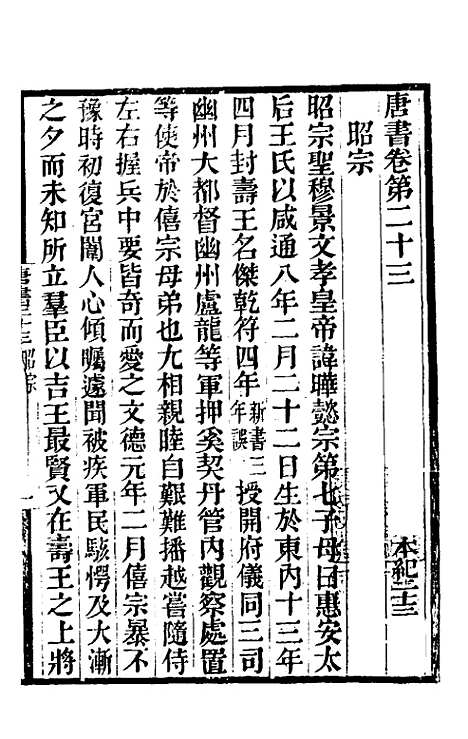 唐書卷第二十三 本紀二十三
昭宗
昭宗聖穆景文孝皇帝諱曄懿宗第七子母曰惠安太
后王氏以咸通八年二月二十二日生於東內十三年
四月封壽王名傑乾符四年新書三年誤授開府儀同三司
幽州大都督幽州盧龍等軍押奚契丹管內觀察處置
等使帝於僖宗母弟也尤相親睦自艱難播越嘗隨侍
左右握兵中要皆奇而愛之文德元年二月僖宗暴不
豫時初復宮闈人心傾矚遽聞被疾軍民駭愕及大漸
之夕而未知所立羣臣以吉王最賢又在壽王之上將
唐書二十三 昭宗 一